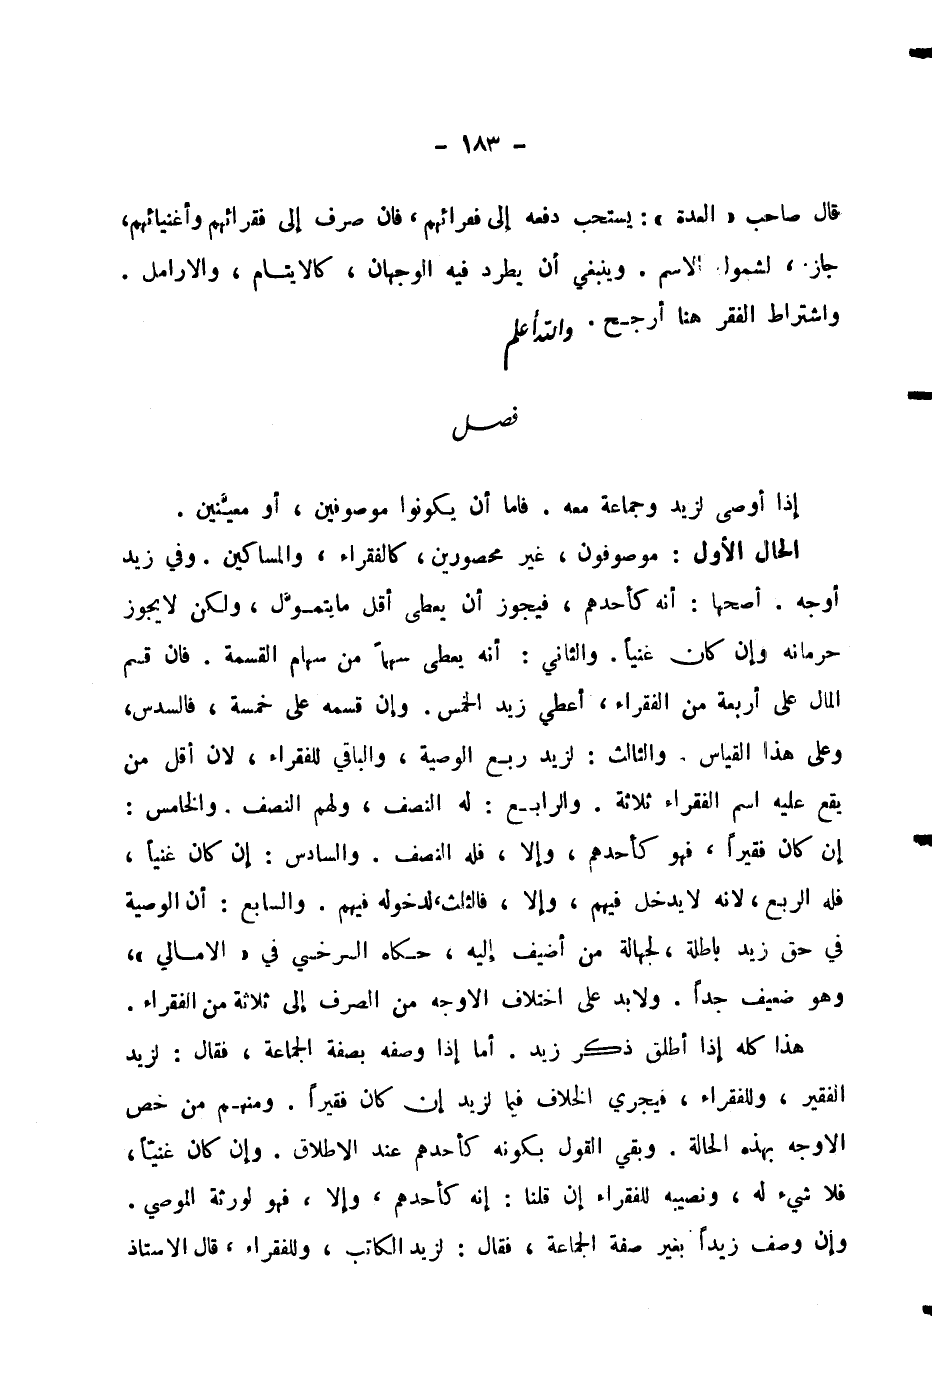 - ١٨٣ -
قال صاحب « العدة » : يستحب دفعه إلى فقرائهم ، فان صرف إلى فقرائهم وأغنيائهم،
جاز ، لشمول الاسم . وينبغي أن يطرد فيه الوجهان ، كالايتـام ، والارامل .
واشتراط الفقر هنا أرجـح . والله أعلم
فصـل
إذا أوصى لزيد وجماعة معه . فاما أن يكونوا موصوفين ، أو معيَّنين .
الحال الأول : موصوفون ، غير محصورين، كالفقراء ، والمساكين . وفي زيد
أوجه . أصحها : أنه كأحدهم ، فيجوز أن يعطى أقل مايتمـوَّل ، ولكن لايجوز
حرمانه وإن كان غنياً . والثاني : أنه يعطى سهماً من سهام القسمة . فان قسم
المال على أربعة من الفقراء ، أعطي زيد الخمس . وإن قسمه على خمسة ، فالسدس،
وعلى هذا القياس . والثالث : لزيد ربـع الوصية ، والباقي للفقراء ، لان أقل من
يقع عليه اسم الفقراء ثلاثة . والرابـع : له النصف ، ولهم النصف . والخامس :
إن كان فقيراً ، فهو كأحدهم ، وإلا ، فله النصف . والسادس : إن كان غنياً ،
فله الربـع ، لانه لايدخل فيهم ، وإلا ، فالثلث ، لدخوله فيهم . والسابع : أن الوصية
في حق زيد باطلة ، لجهالة من أضيف إليه ، حـكاه السرخسي في « الامـالي »،
وهو ضعيف جداً . ولابد على اختلاف الاوجه من الصرف إلى ثلاثة من الفقراء .
هذا كله إذا أطلق ذكر زيد . أما إذا وصفه بصفة الجماعة ، فقال : لزيد
الفقير ، وللفقراء ، فيجري الخلاف فيما لزيد إن كان فقيراً . ومنهـم من خص
الاوجه بهذه الحالة . وبقي القول بكونه كأحدهم عند الاطلاق . وإن كان غنيّاً،
فلا شيء له ، ونصيبه للفقراء إن قلنا : إنه كأحدهم ، وإلا ، فهو لورثة الموصي .
وإن وصف زيداً بغير صفة الجماعة ، فقال : لزيد الكاتب ، وللفقراء ، قال الاستاذ